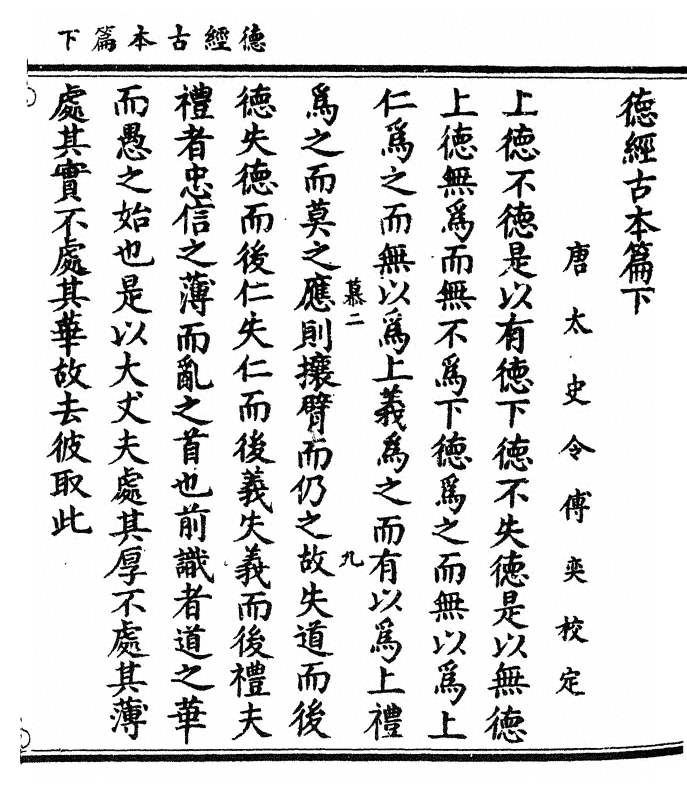 德經古本篇下
德經古本篇下
唐太史令傅奕校定
上德不德是以有德下德不失德是以無德
上德無爲而無不爲下德爲之而無以爲上
仁爲之而無以爲上義爲之而有以爲上禮
慕二
九
爲之而莫之應則攘臂而仍之故失道而後
德失德而後仁失仁而後義失義而後禮夫
禮者忠信之薄而亂之首也前識者道之華
而愚之始也是以大丈夫處其厚不處其薄
處其實不處其華故去彼取此